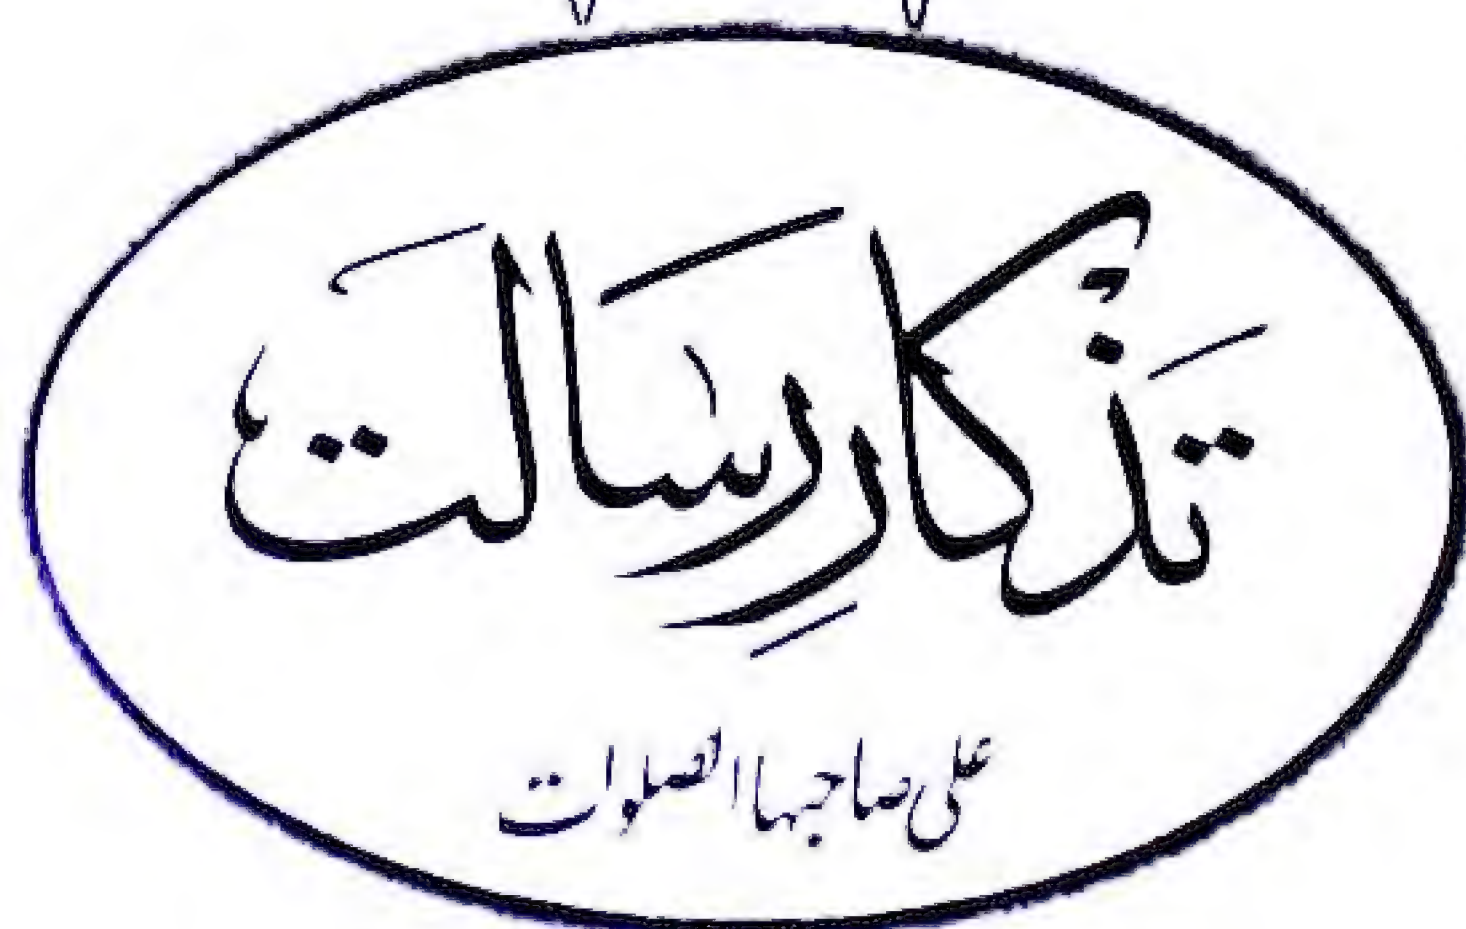 تَذْكَارِ رسَالت
علی صاحبہا الصلوات